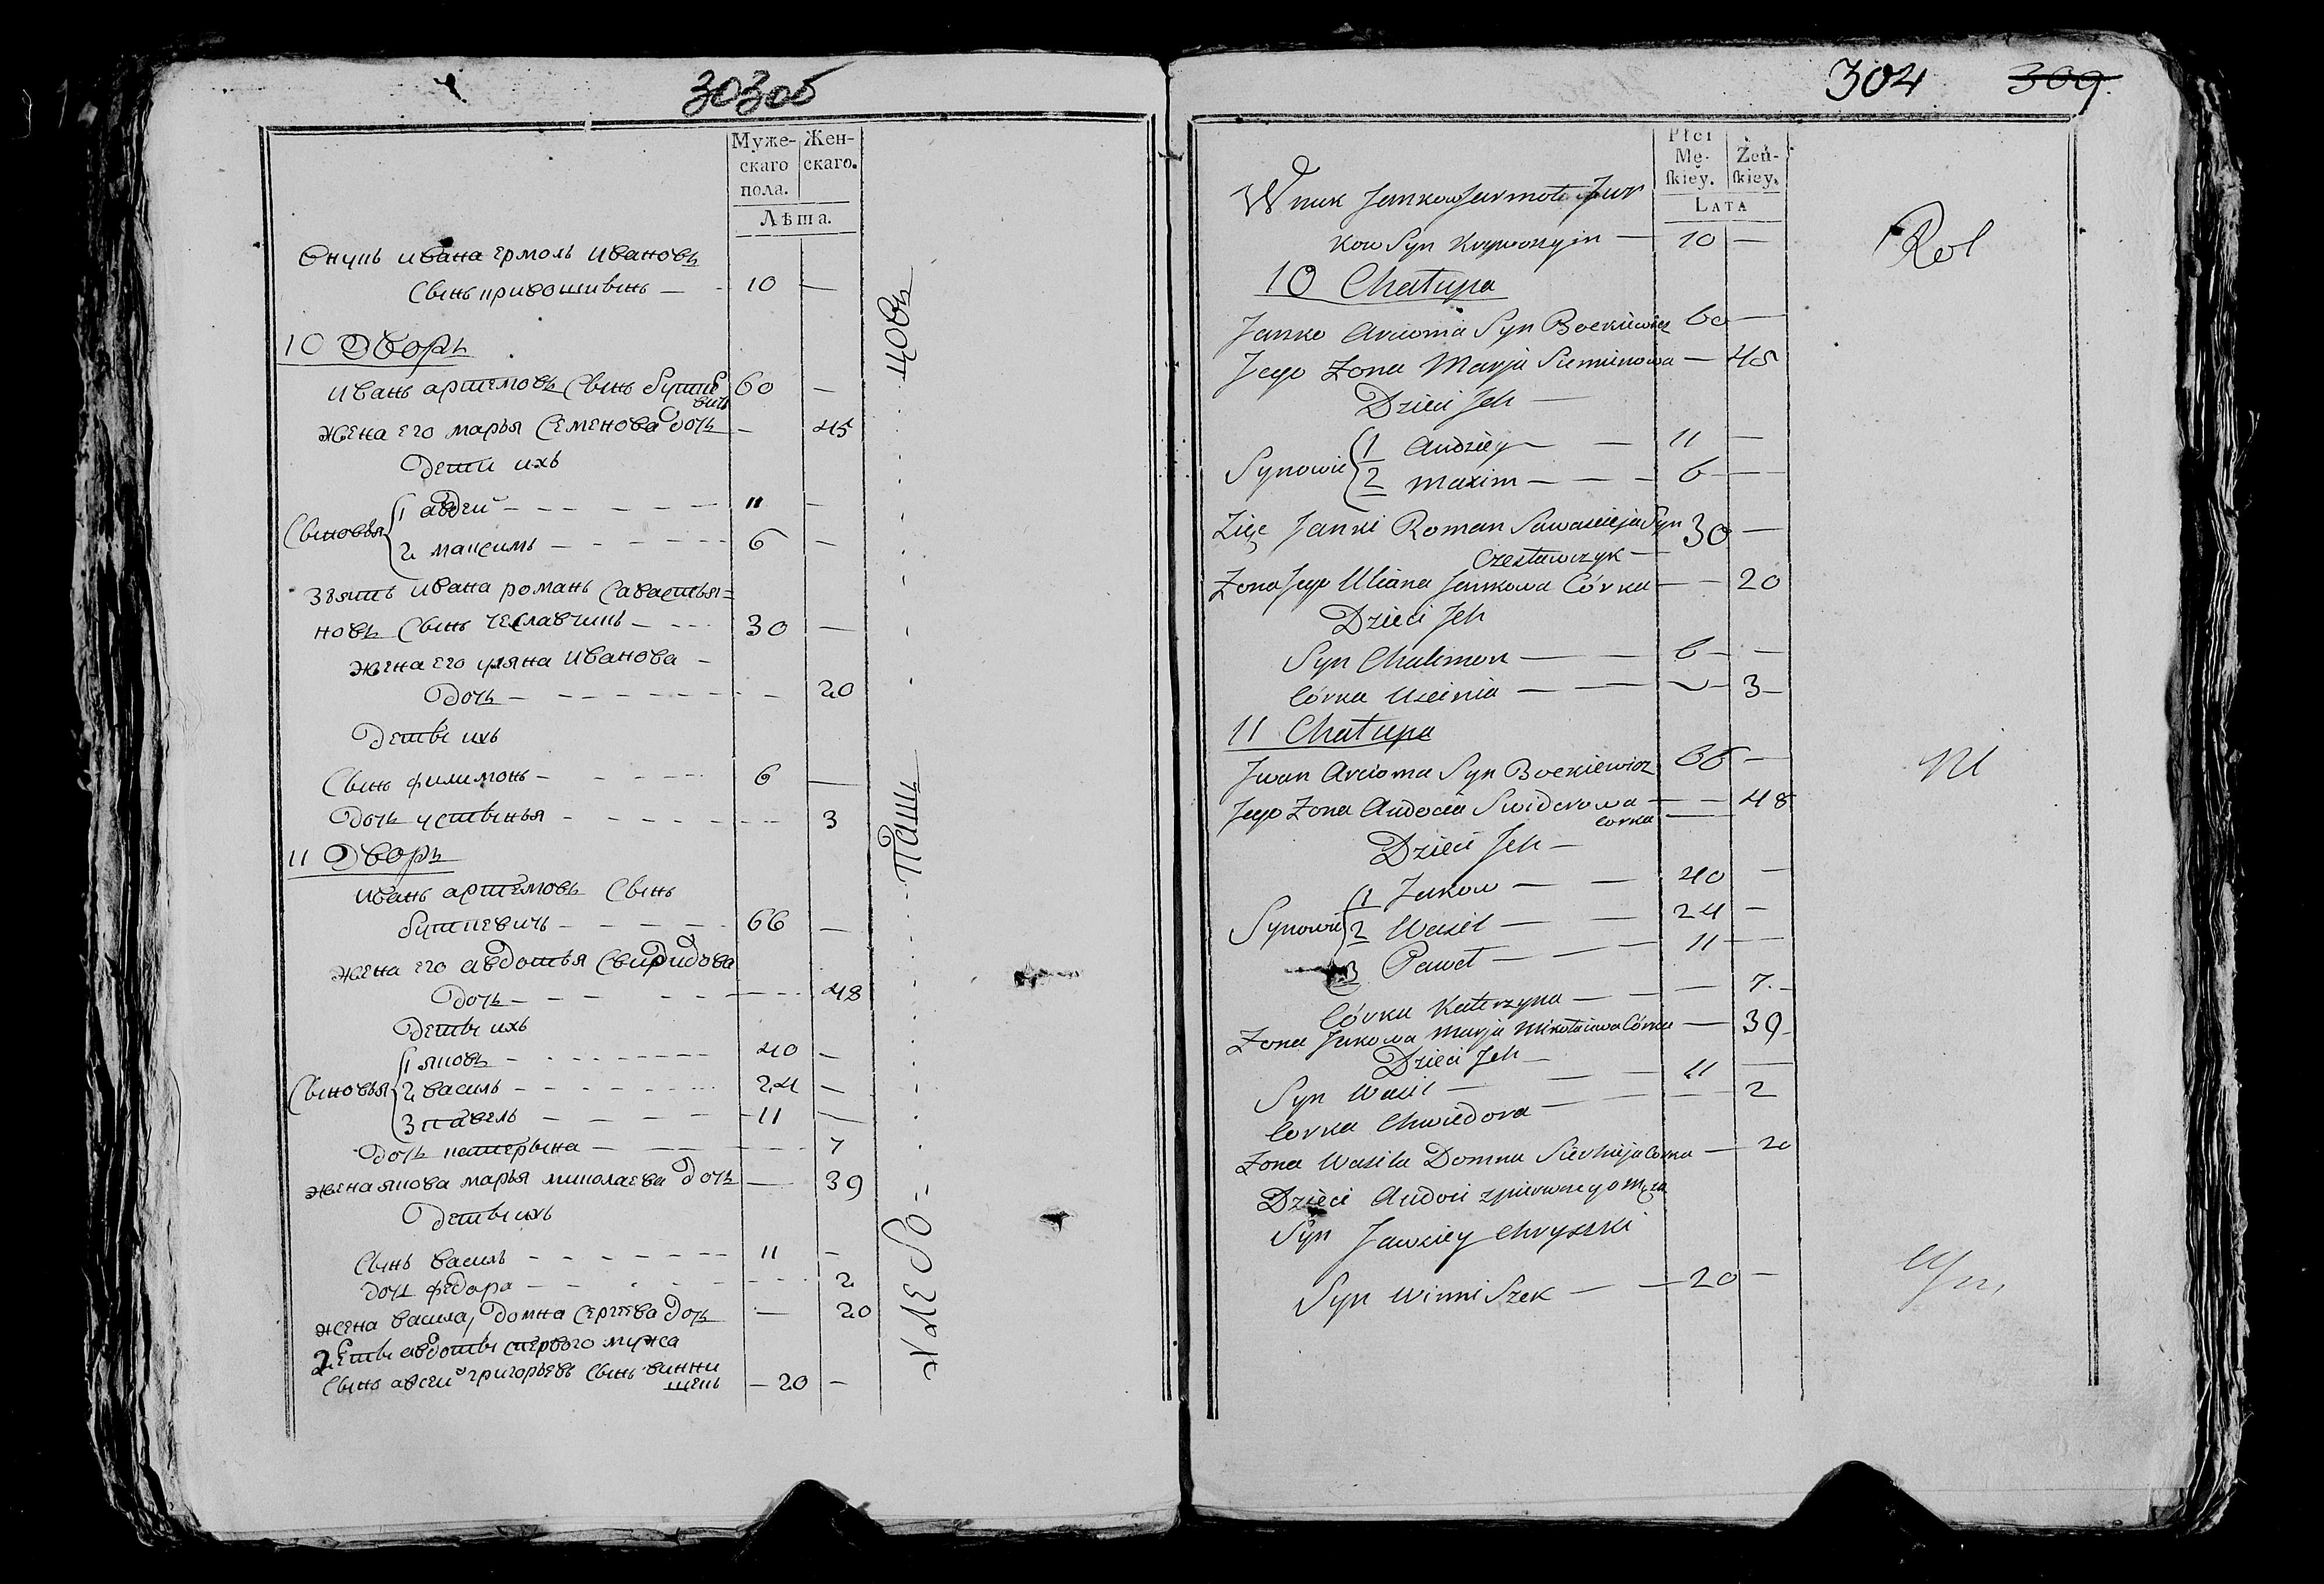 303об
Муже-
скаго
пола.
Жен-
скаго.
Лѣта.
Внукъ ивана ермолъ ивановъ
сынъ кривошивкъ — 10 —
10 Дворъ
иванъ артемовъ сынъ буткѣ
вичъ 60 —
жена его марья семенова дочь — 45
дети ихъ
сыновья 1 авдей — 11 —
2 максимъ — 6 —
зъять ивана романъ савастья=
новъ сынъ чеславчикъ — 30 —
жена его уляна иванова —
дочь — 20
деты ихъ
сынъ филимонъ — 6 —
дочь устинья — 3
11 Дворъ
иванъ артемовъ сынъ
буткевичъ — 66 —
жена его авдотья свиридова
дочь — 48
деты ихъ
сыновья 1 яковъ — 40 —
2 василь — 24 —
3 павелъ — 11 —
дочь катерына — 7
жена якова марья миколаева дочь — 39
деты ихъ
сынъ василь — 11 —
дочь федора — 2
жена василя, домна сергѣева дочь — 20
деты авдоты первого мужа
сынъ авсей григорьевъ сынъ винни
щекъ — 20 —
хлебо=
пашъ
цовъ
304 309.
Płci
Mę-
ſkiey.
Żeń-
ſkiey.
LATA
Wnuk Jankow Jarmoła Jan
kow Syn Krywoszyin — 10 —
10 Chałupa
Janko Arcioma Syn Boekiewicz 60 —
Jego Zona Marja Siemionowa — 45
Dzieci Jch —
Synowie 1 Audziey — 11 —
2 Maxim — 6 —
Zięc Janki Roman Sawascieja Syn 30 —
Czesławczyk —
Zona Jego Uliana Jankowa Córka — 20
Dzieci Jch
Syn Chalimon — 6 —
Córka Uscinia — 3 —
11 Chałupa
Jwan Arcioma Syn Boekiewicz 66 —
Jego Zona Audocia Swiderowa — 48
Corka —
Dzieci Jch —
Synowie 1 Jakow — 40 —
2 Wasil — 24 —
3 Paweł — 11 —
Córka Katerzyna — 7. —
Zona Jakowa Marja Mikołaiowa Córka — 39 —
Dzieci Jch —
Syn Wasil — 11 —
Corka Chwiedora — 2
Zona Wasila Domna Sierhieja Corka — 20
Dzieci Audoci zpierwszego Męza
Syn Jawsiey Chryszki
Syn WinniSzek — 20 —
Rol
ni